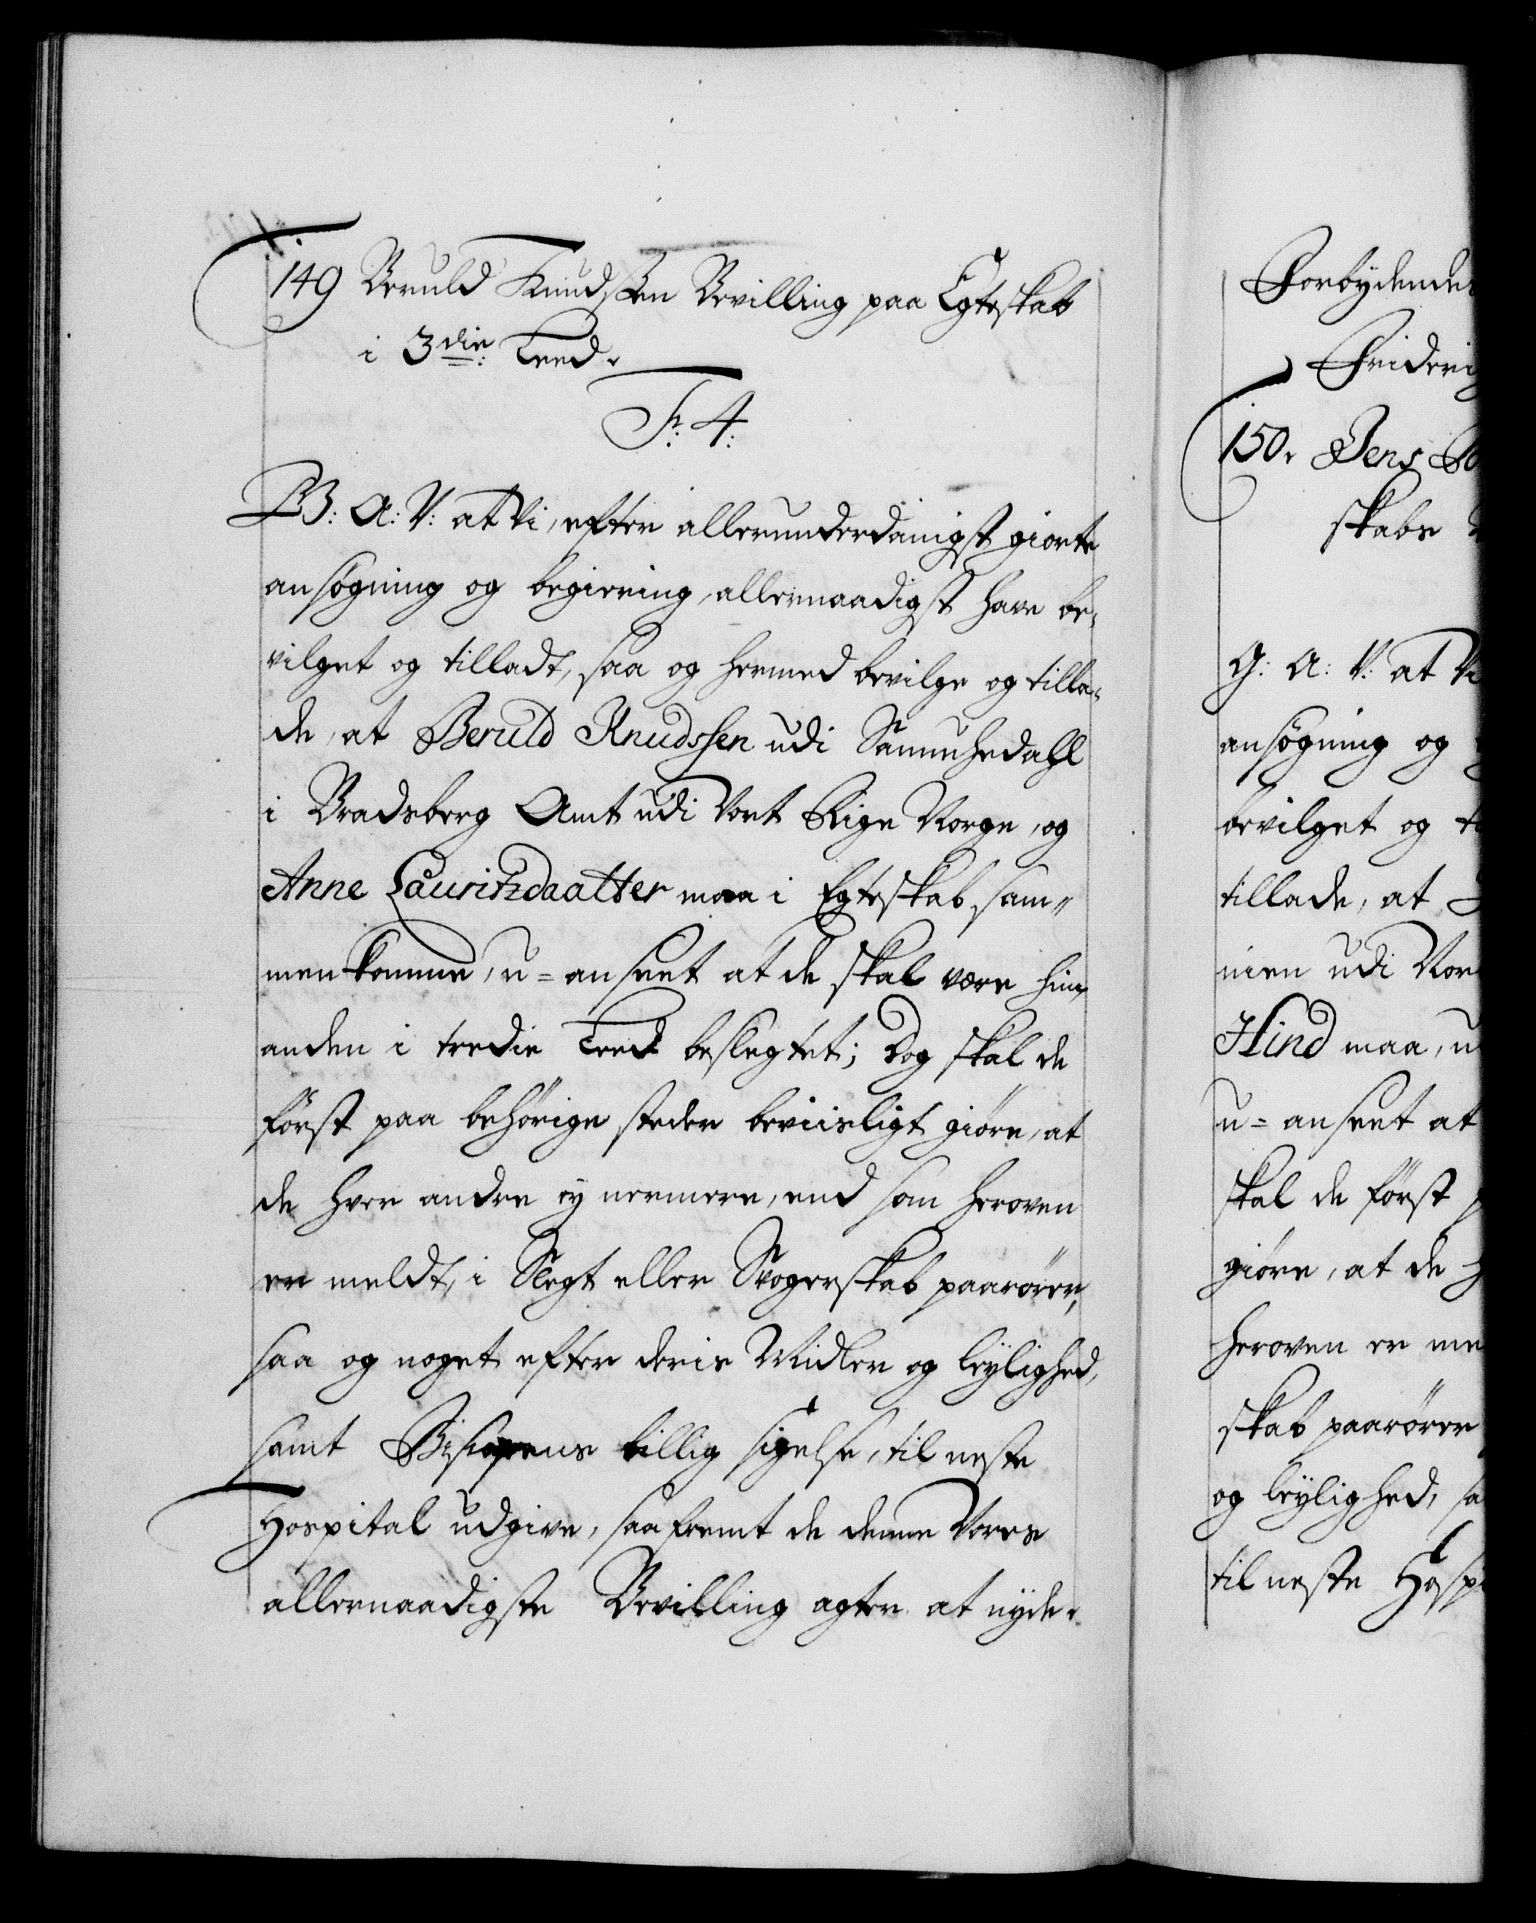 149 Beruld Knudssen Bevilling paa Egteskab
i 3die: Leed.
Fr: 4:
G: A: V: at Vi, efter allerunderdanigst giorte
ansøgning og begiering, allernaadigst have be,
vilget og tilladt, saa og hermed bevilge og tilla,
de, at Beruld Knudssen udi
i Bradsberg Amt udi Vort Rige Norge, og
Anne Lauritzdaatter maa i Egteskab sam,,
men komme, u=anseet at de skal være hin,
anden i tredie Leed beslegtet; Dog skal de
først paa behørige steder beviisligt giøre, at
de hver andre ey nermere, end som heroven
er meldt, i Slegt eller Svogerskab paarører,
saa og noget efter deris Midler og leylighed,
samt Biscopens billig sigelse, til neste
Hospital udgive, saa fremt de denne Vores
allernaadigste Bevilling agter at nyde.
Forbydendes
Friderichs
150. Jens
skabs
G: A: V: at Vi
ansøgning og
bevilget og
tillade, at
nien udi Nor
Hind maa, u
u=anseet at
skal de først
giøre, at de
heroven er me
skab paarører
og leylighed, sa
til neste Hospi